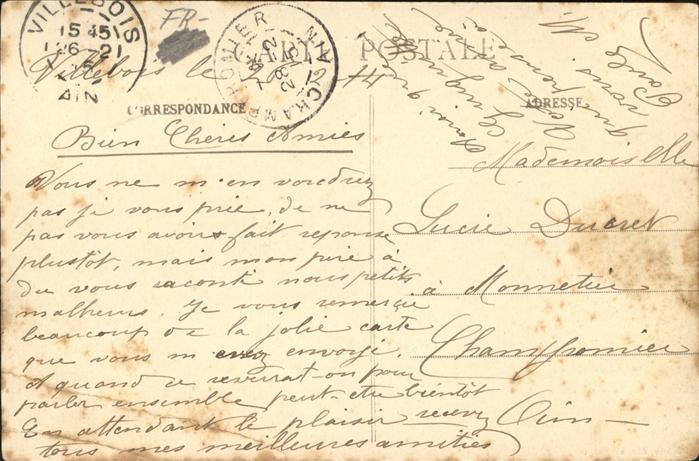 VILLEBOIS
15 45
26 - 2
AIN
FR-
CHAMPFROMIER
AIN
CARTE POSTALE
Villebois le
14
CORRESPONDANCE
ADRESSE
Bien Cheres Amies
Vous ne m'en voudrez
pas je vous prie, de ne
pas vous avoir fait reponse
plustôt, mais mon père à
du vous raconté nous petits
malheurs. Je vous remercie
beaucoup de la jolie carte
que vous m'avez envoyé.
A quand ce reverrat-on pour
parler ensemble peut-etre bientôt
En attendant le plaisir recevez
tous mes meilleures amitiés
Mademoiselle
Lucie Ducret
à Monnetier
Champfromier
Ain